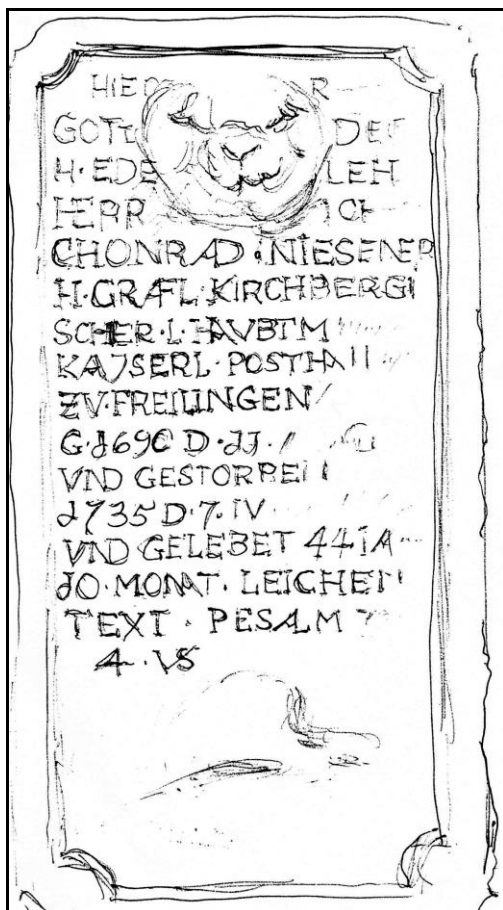 HIE
GOTT DER
H·EDE LEH
HERR ICH
CHONRAD·NIESENER
H·GRÄFL·KIRCHBERGI
SCHER·L·HAVBTM
KAJSERL·POSTHA
ZV·FREILINGEN
G·J690 D·JJ·
VND GESTORBEN
J735 D·7·IV
VND GELEBET 44 IA
JO·MONAT·LEICHEN
TEXT·PESALM
4·VS